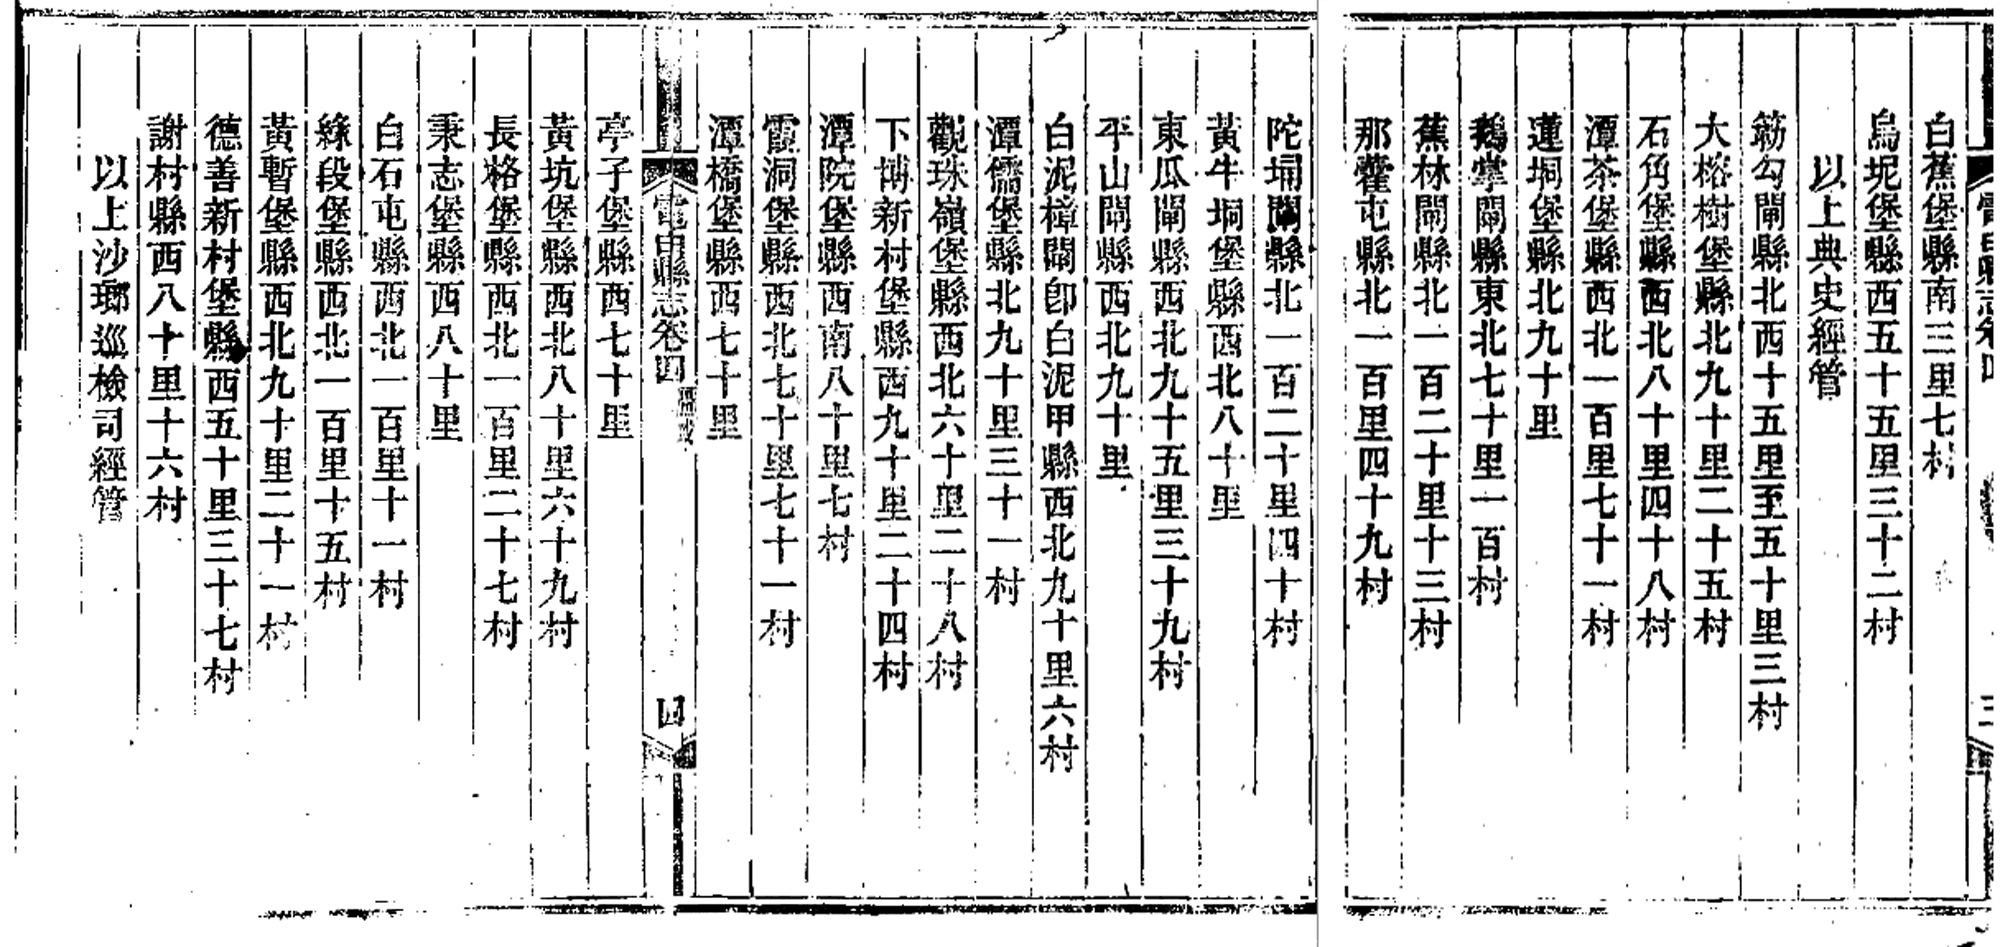 白蕉堡縣南三里七村
烏坭堡縣西五十五里三十二村
以上典史經管
簕勾閘縣北西十五里至五十里三村
大榕樹堡縣北九十里二十五村
石角堡縣西北八十里四十八村
潭茶堡縣西北一百里七十一村
蓮垌堡縣北九十里
鵝掌閘縣東北七十里一百村
蕉林閘縣北一百二十里十三村
那霍屯縣北一百里四十九村
陀埇閘縣北一百二十里四十村
黃牛垌堡縣西北八十里
東瓜閘縣西北九十五里三十九村
平山閘縣西北九十里
白泥樟閘卽白泥甲縣西北九十里六村
潭儒堡縣北九十里三十一村
觀珠嶺堡縣西北六十里二十八村
下博新村堡縣西九十里二十四村
潭院堡縣西南八十里七村
霞洞堡縣西北七十里七十一村
潭橋堡縣西七十里
電白縣志卷四
四
亭子堡縣西七十里
黃坑堡縣西北八十里六十九村
長格堡縣西北一百里二十七村
秉志堡縣西八十里
白石屯縣西北一百里十一村
絲段堡縣西北一百里十五村
黃暫堡縣西北九十里二十一村
德善新村堡縣西五十里三十七村
謝村縣西八十里十六村
以上沙瑯巡檢司經管